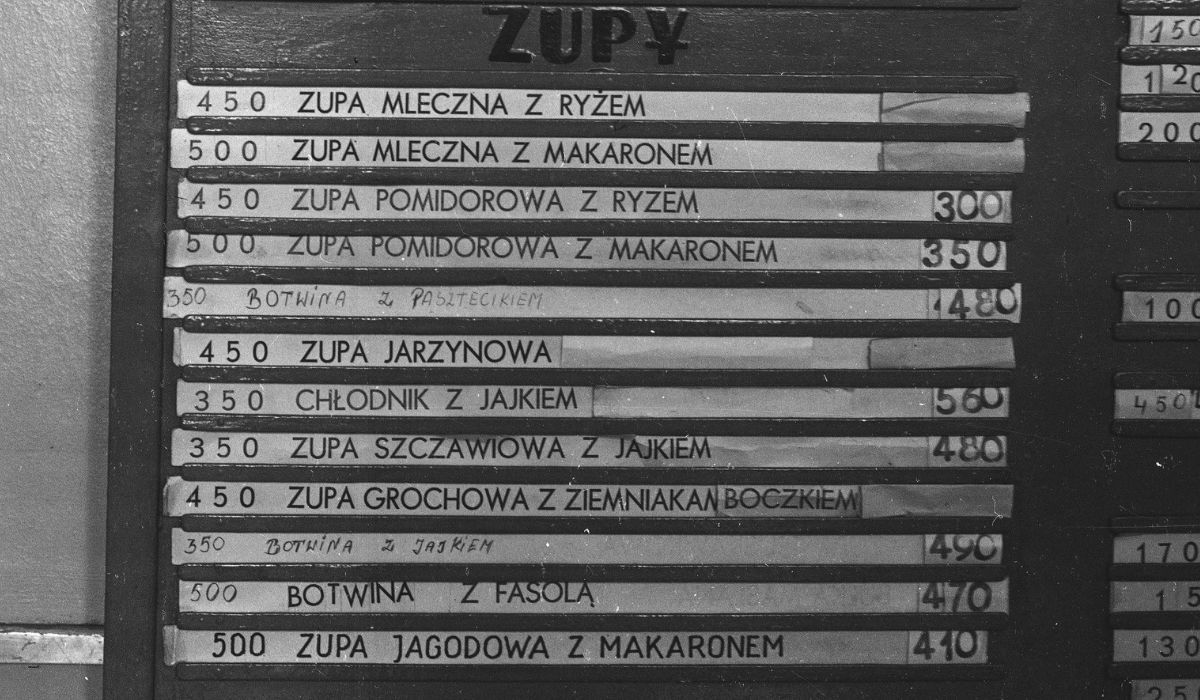 ZUPY
450 ZUPA MLECZNA Z RYŻEM
500 ZUPA MLECZNA Z MAKARONEM
450 ZUPA POMIDOROWA Z RYZEM 300
500 ZUPA POMIDOROWA Z MAKARONEM 350
350 BOTWINA Z PASZTECIKIEM 480
450 ZUPA JARZYNOWA
350 CHŁODNIK Z JAJKIEM 560
350 ZUPA SZCZAWIOWA Z JAJKIEM 480
450 ZUPA GROCHOWA Z ZIEMNIAKAN BOCZKIEM
350 BOTWINA Z JAJKIEM 490
500 BOTWINA Z FASOLĄ 470
500 ZUPA JAGODOWA Z MAKARONEM 410
150
120
200
100
450
170
15
130